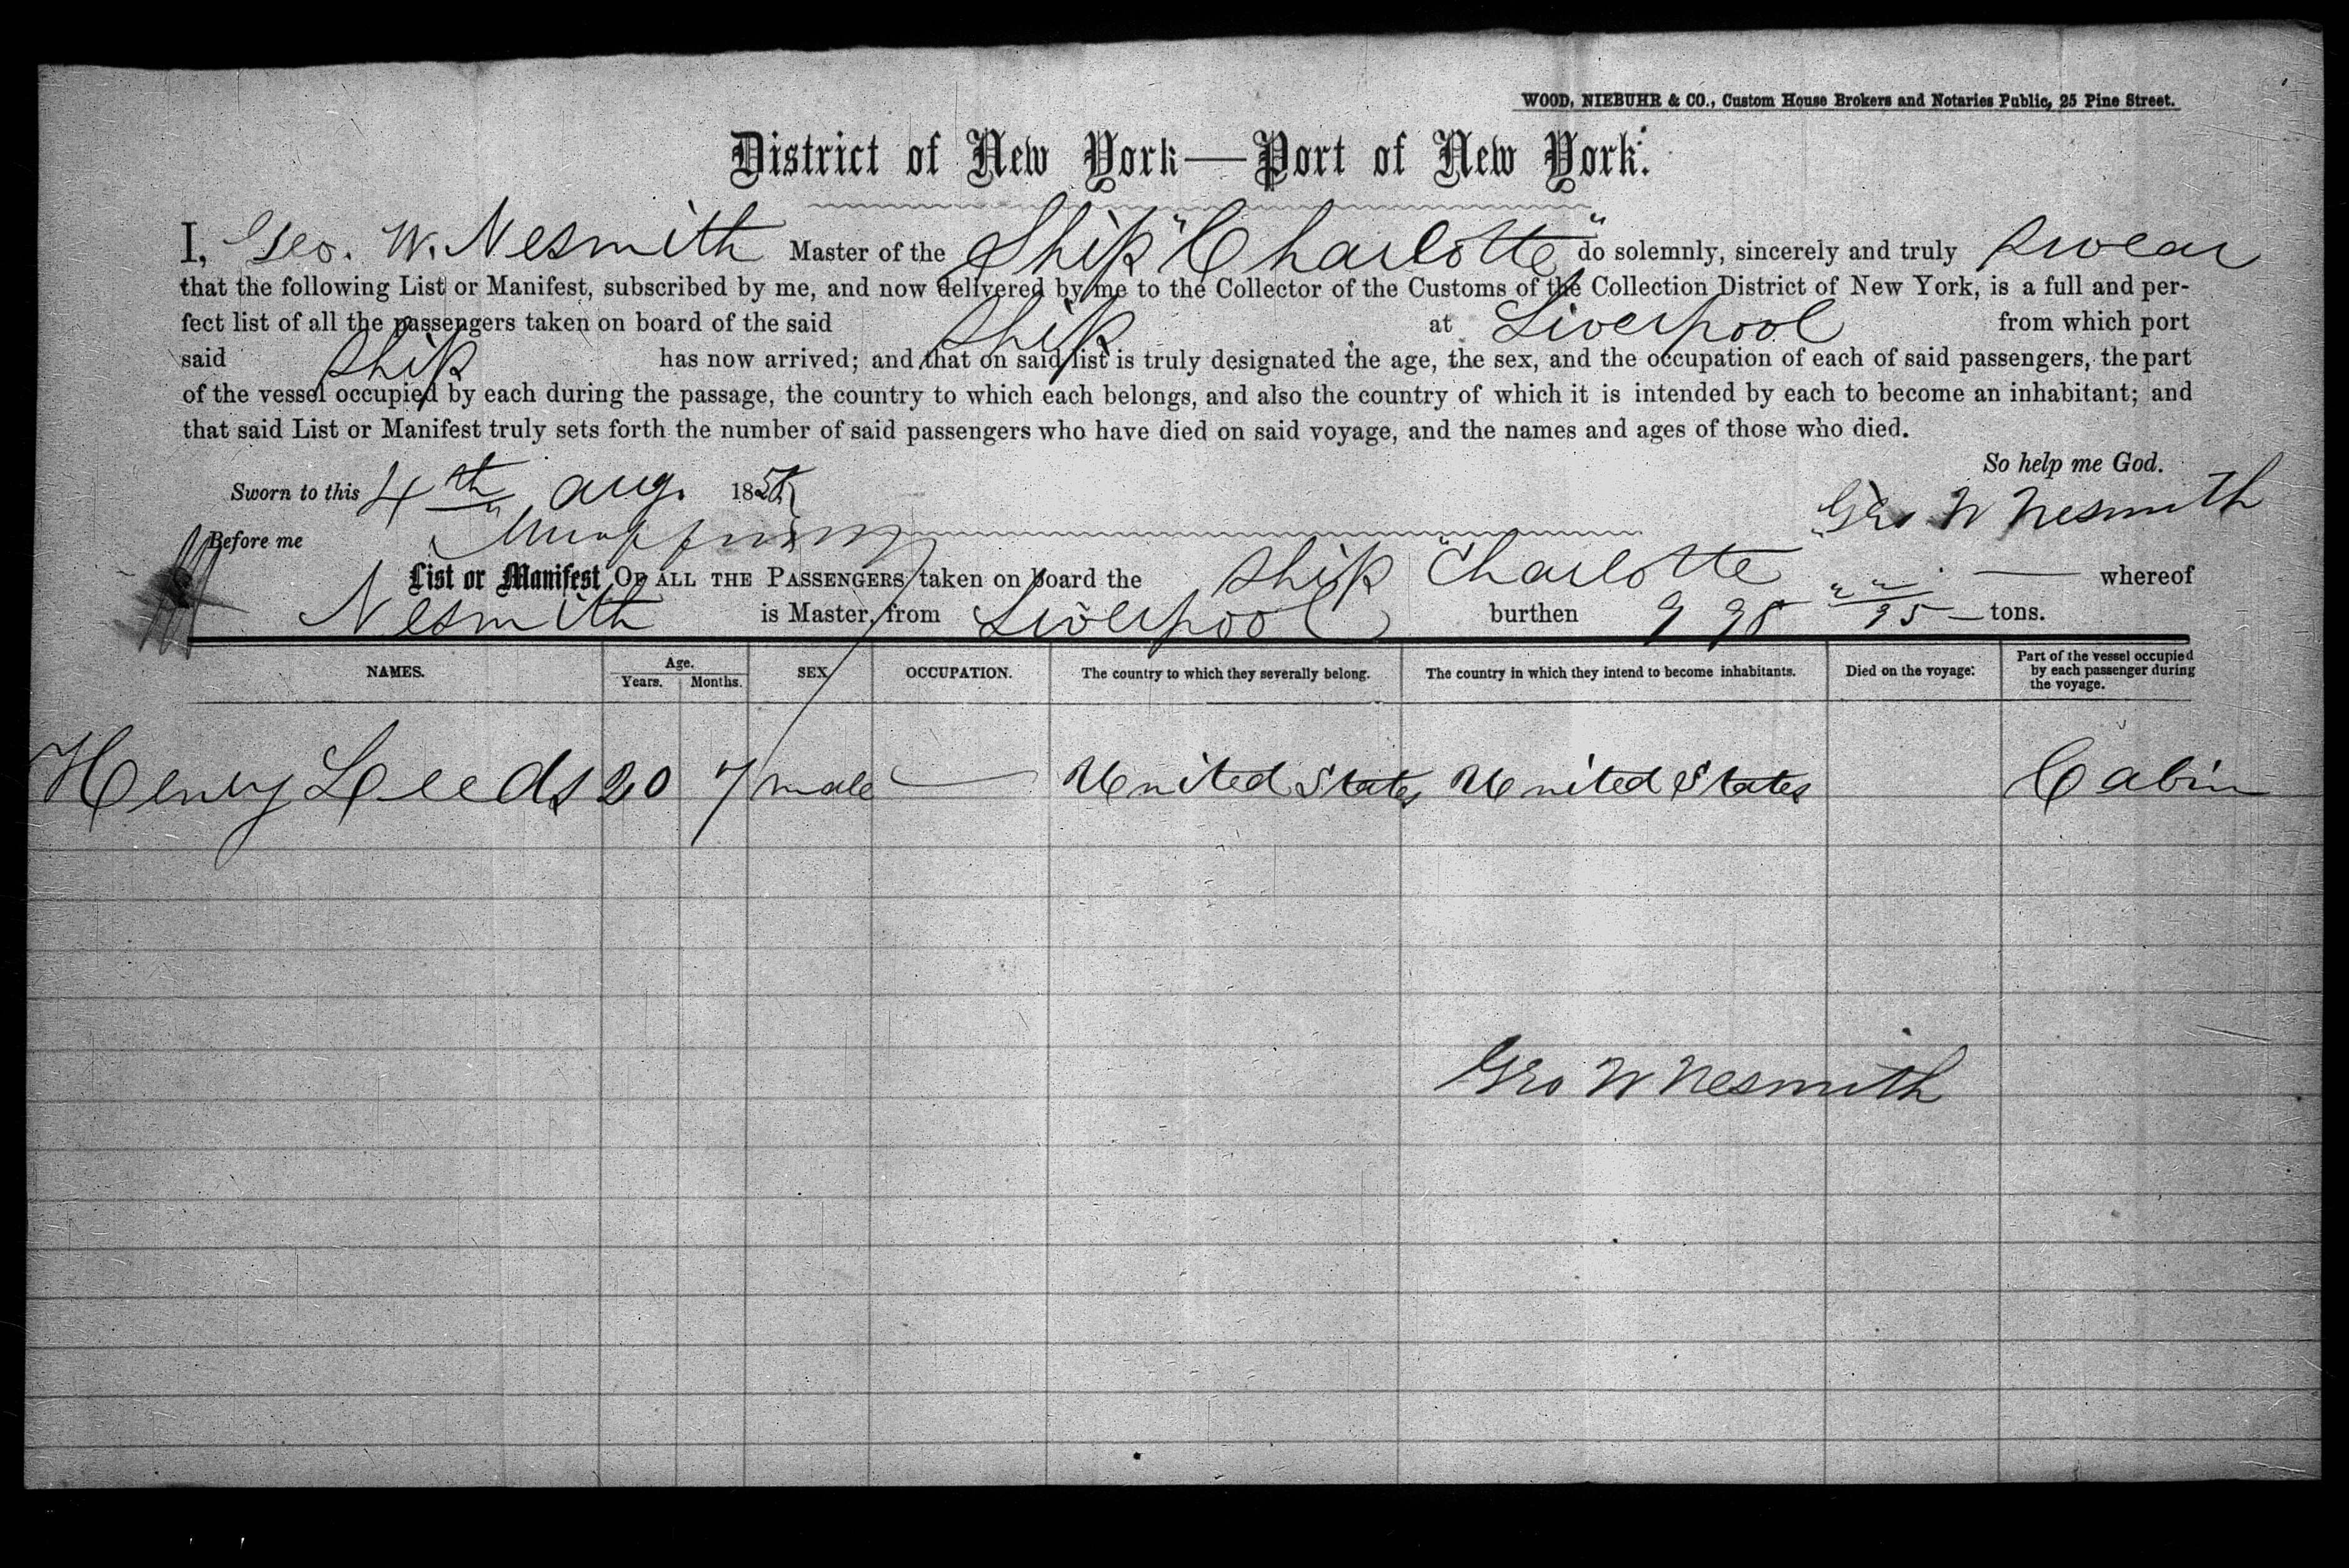 WOOD, NIEBUHR & CO., Custom House Brokers and Notaries Public, 25 Pine Street.
District of New York—Port of New York.
I, Geo. W. Nesmith Master of the Ship "Charlotte" do solemnly, sincerely and truly swear
that the following List or Manifest, subscribed by me, and now delivered by me to the Collector of the Customs of the Collection District of New York, is a full and per-
fect list of all the passengers taken on board of the said Ship at Liverpool from which port
said Ship has now arrived; and that on said list is truly designated the age, the sex, and the occupation of each of said passengers, the part
of the vessel occupied by each during the passage, the country to which each belongs, and also the country of which it is intended by each to become an inhabitant; and
that said List or Manifest truly sets forth the number of said passengers who have died on said voyage, and the names and ages of those who died.
So help me God.
Sworn to this 4th aug. 18
Geo W Nesmith
Before me
List or Manifest OF ALL THE PASSENGERS taken on board the Ship "Charlotte" whereof
Nesmith is Master, from Liverpool burthen 998 /95 tons.
NAMES. Age. Years. Months. SEX OCCUPATION. The country to which they severally belong. The country in which they intend to become inhabitants. Died on the voyage: Part of the vessel occupied by each passenger during the voyage.
Henry Leeds 20 7 male — United States United States Cabin
Geo W Nesmith